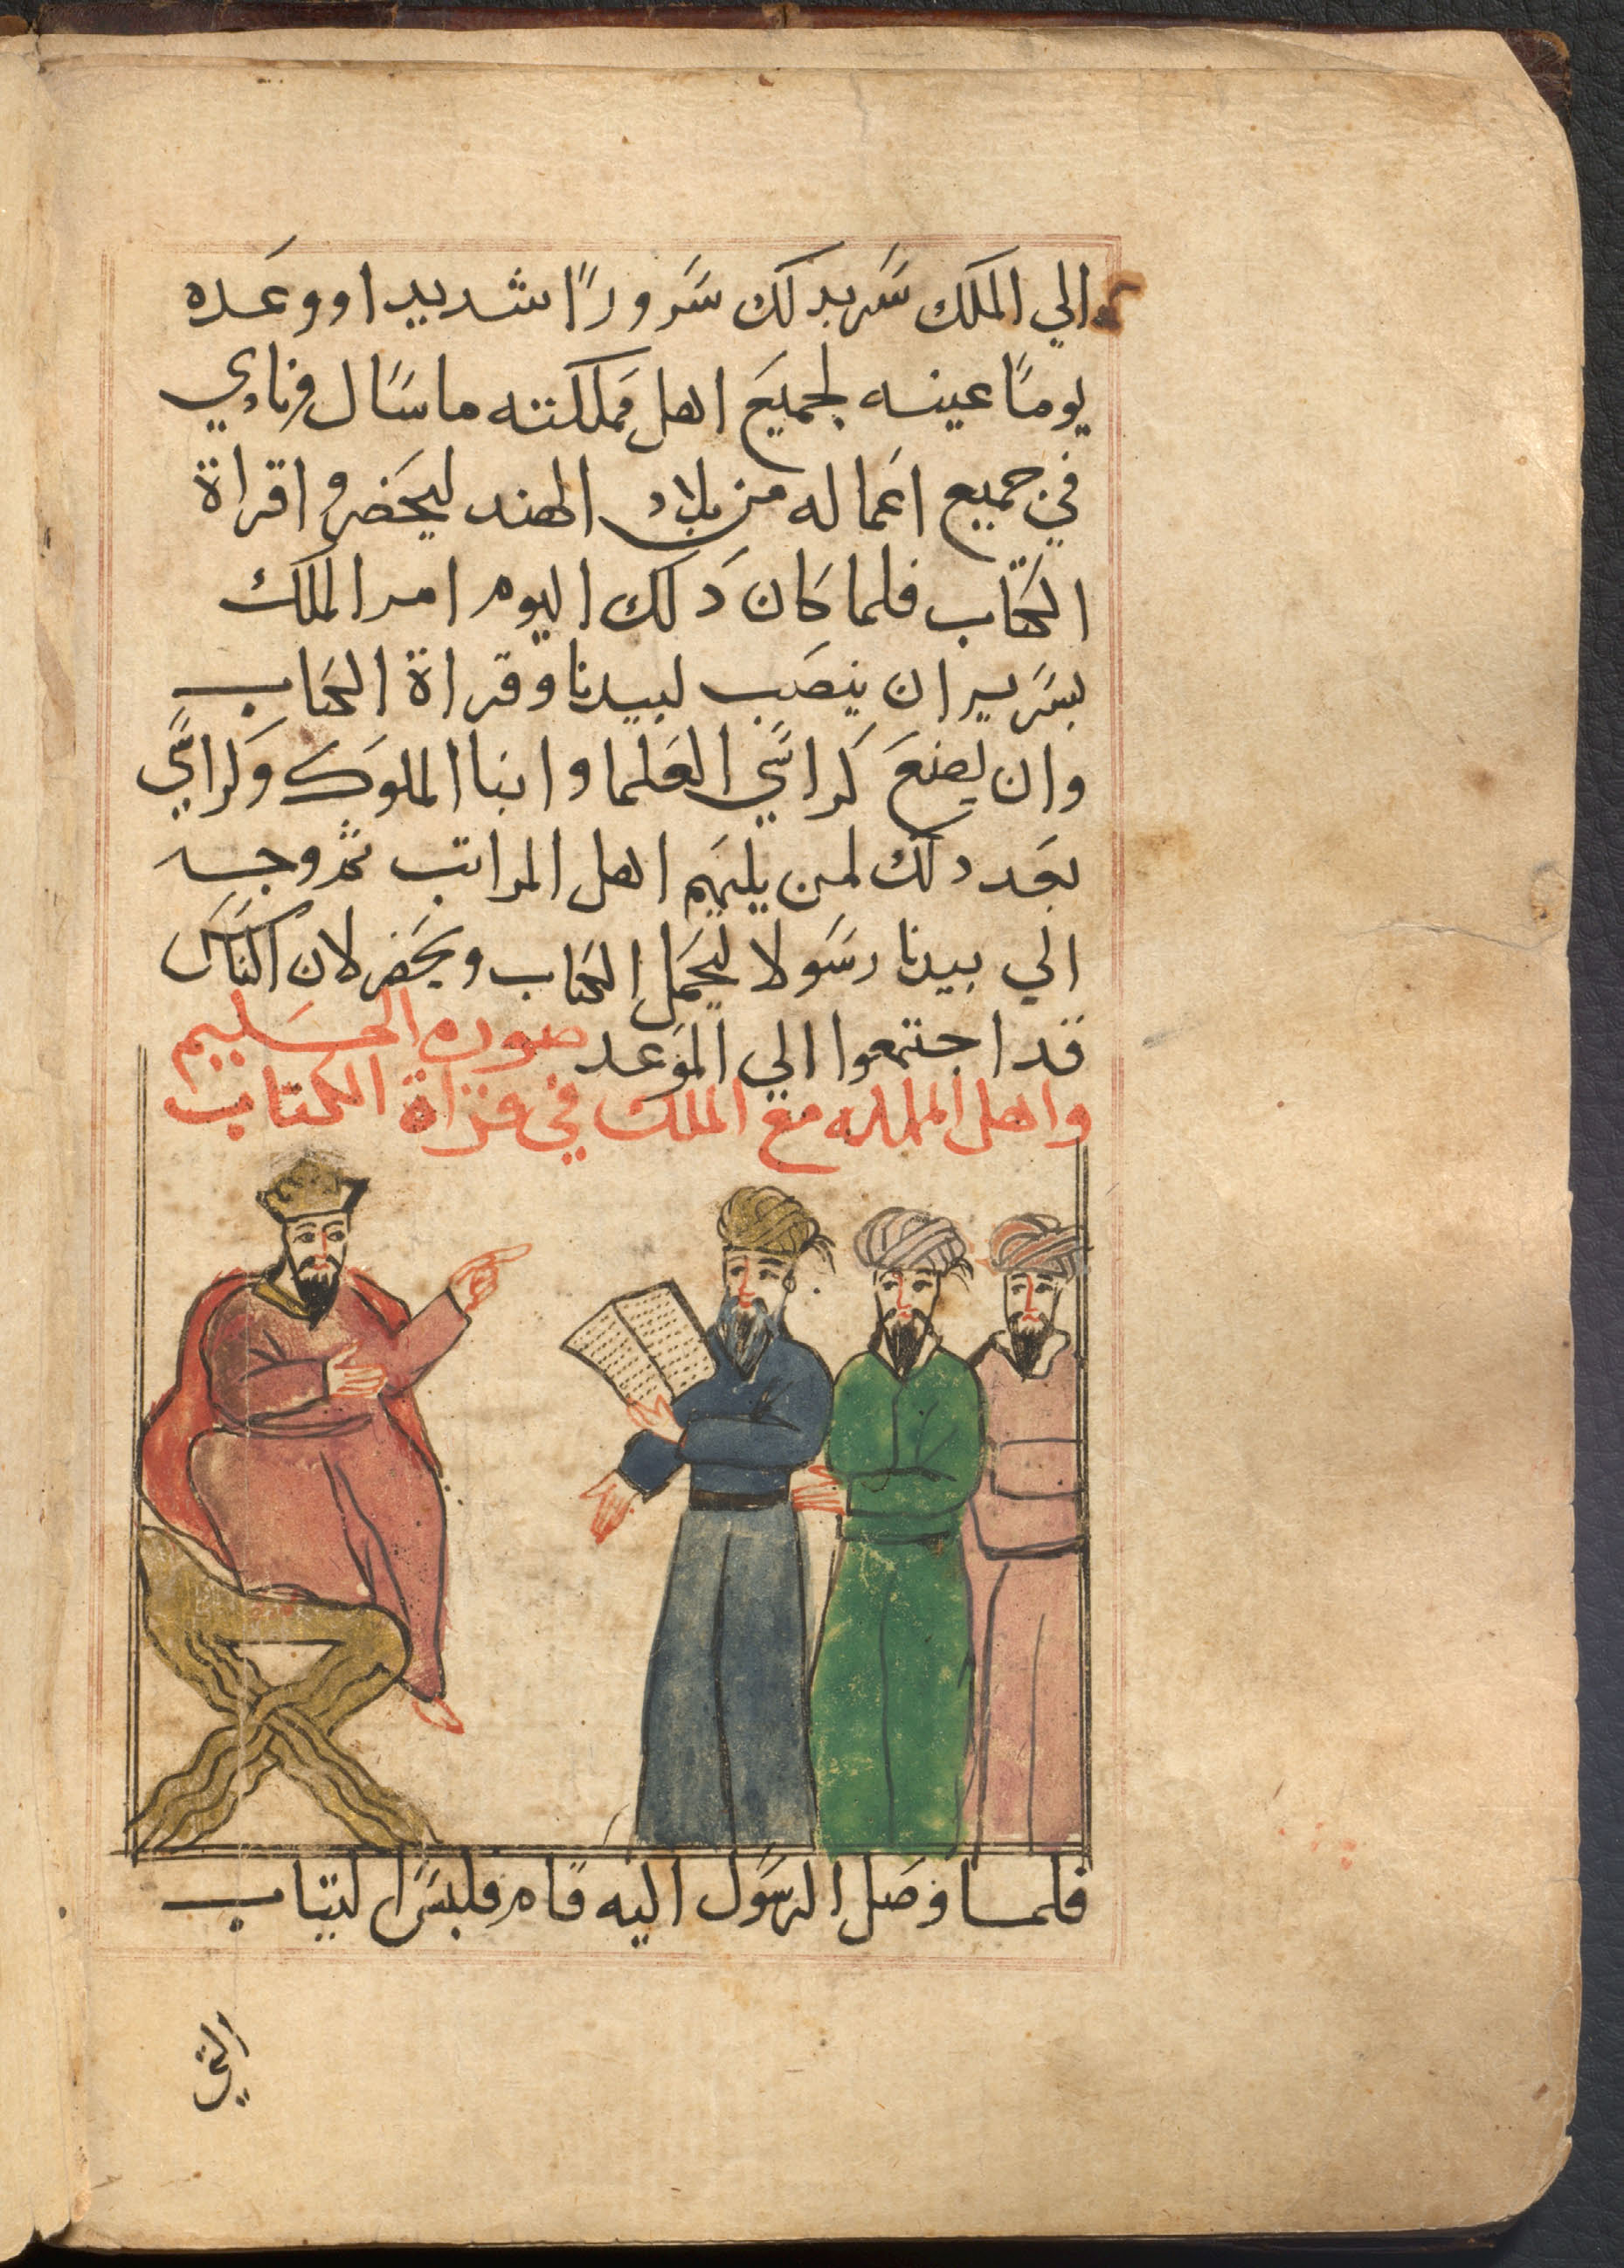 الي الملك سر بدلك سرورًا شديدا ووعده
يومًا عينه لجميع اهل مملكته ما سال ونادي
في جميع اعماله من بلاد الهند ليحضروا قراة
الكتاب فلما كان دلك اليوم امر الملك
بسرير ان ينصب لبيدنا وقراة الكتاب
وان يصنع كراسي العلما وابنا الملوك وكراسي
بعد دلك لمن يليهم اهل المراتب ثم وجه
الي بيدنا رسولا ليحمل الكتاب ويحضر لان الناس
قد اجتمعوا الي الموعد صورة الحسليم
واهل المملكه مع الملك في قراة الكتاب
فلما وصل الرسول اليه قام فلبس التياب
التي